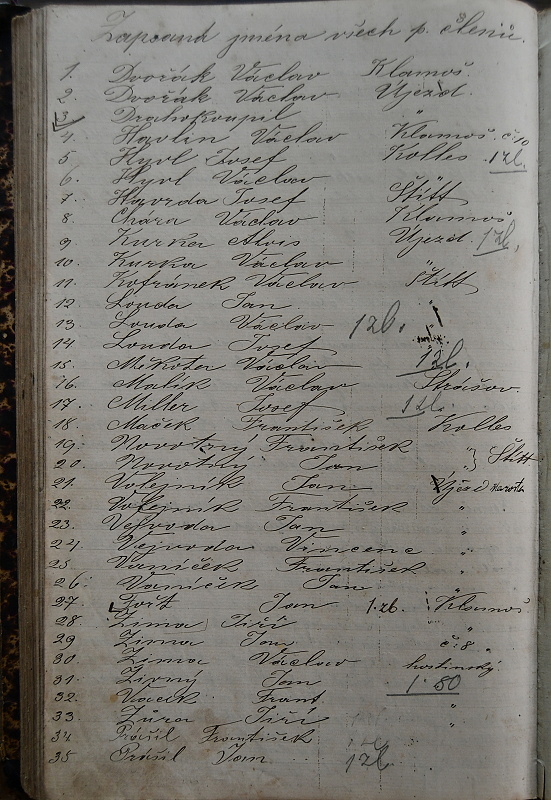 Zapsaná jména všech p. členů.
1. Dvořák Václav Klamoš.
2. Dvořák Václav Újezd.
3. Drahokoupil "
4. Havlin Václav Klamoš. č. 10
5 Hyvl Josef Kolles. 1 zl.
6. Hyvl Václav "
7. Havrda Josef Štítt
8. Chára Václav Klamoš
9. Kurka Alois Újezd. 1 zl.
10. Kurka Václav "
11. Kofránek Václav Štitt
12. Louda Jan "
13. Louda Václav 1 zl.
14. Louda Josef
15. Měkota Václav 1 zl.
16. Malik Václav Strášov.
17. Miller Josef 1 zl.
18. Maček František Kolles
19. Novotný František "
20. Novotný Jan " } Štitt
21. Votejník Jan Újezd
22. Votejník František "
23. Vejvoda Jan "
24. Vejvoda Vincenc "
25. Vaníček František "
26. Vaníček Jan
27. Jan 1. zl. Klamoš
28. Zima Jiří "
29 Zima Jan č: 8 "
30. Zima Václav hostinský
31. Zirný Jan 1 80
32. Vacek Frant. "
33. Zůra Jiří "
34 Prášil František
35 Prášil Jan 1 zl